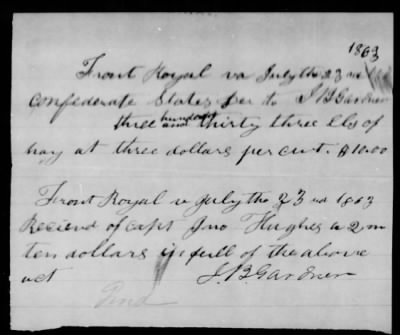 1863
Front Royal va July the 23 rd
Confederate States per to J B Gardner
hundred
three and thirty three lbs of
hay at three dollars per cwt. $10.00
Front Royal v July the 23 rd 1863
Reciend of Capt Jno Hughes a 2 m
ten dollars in full of the above
act
J. B. Gardner